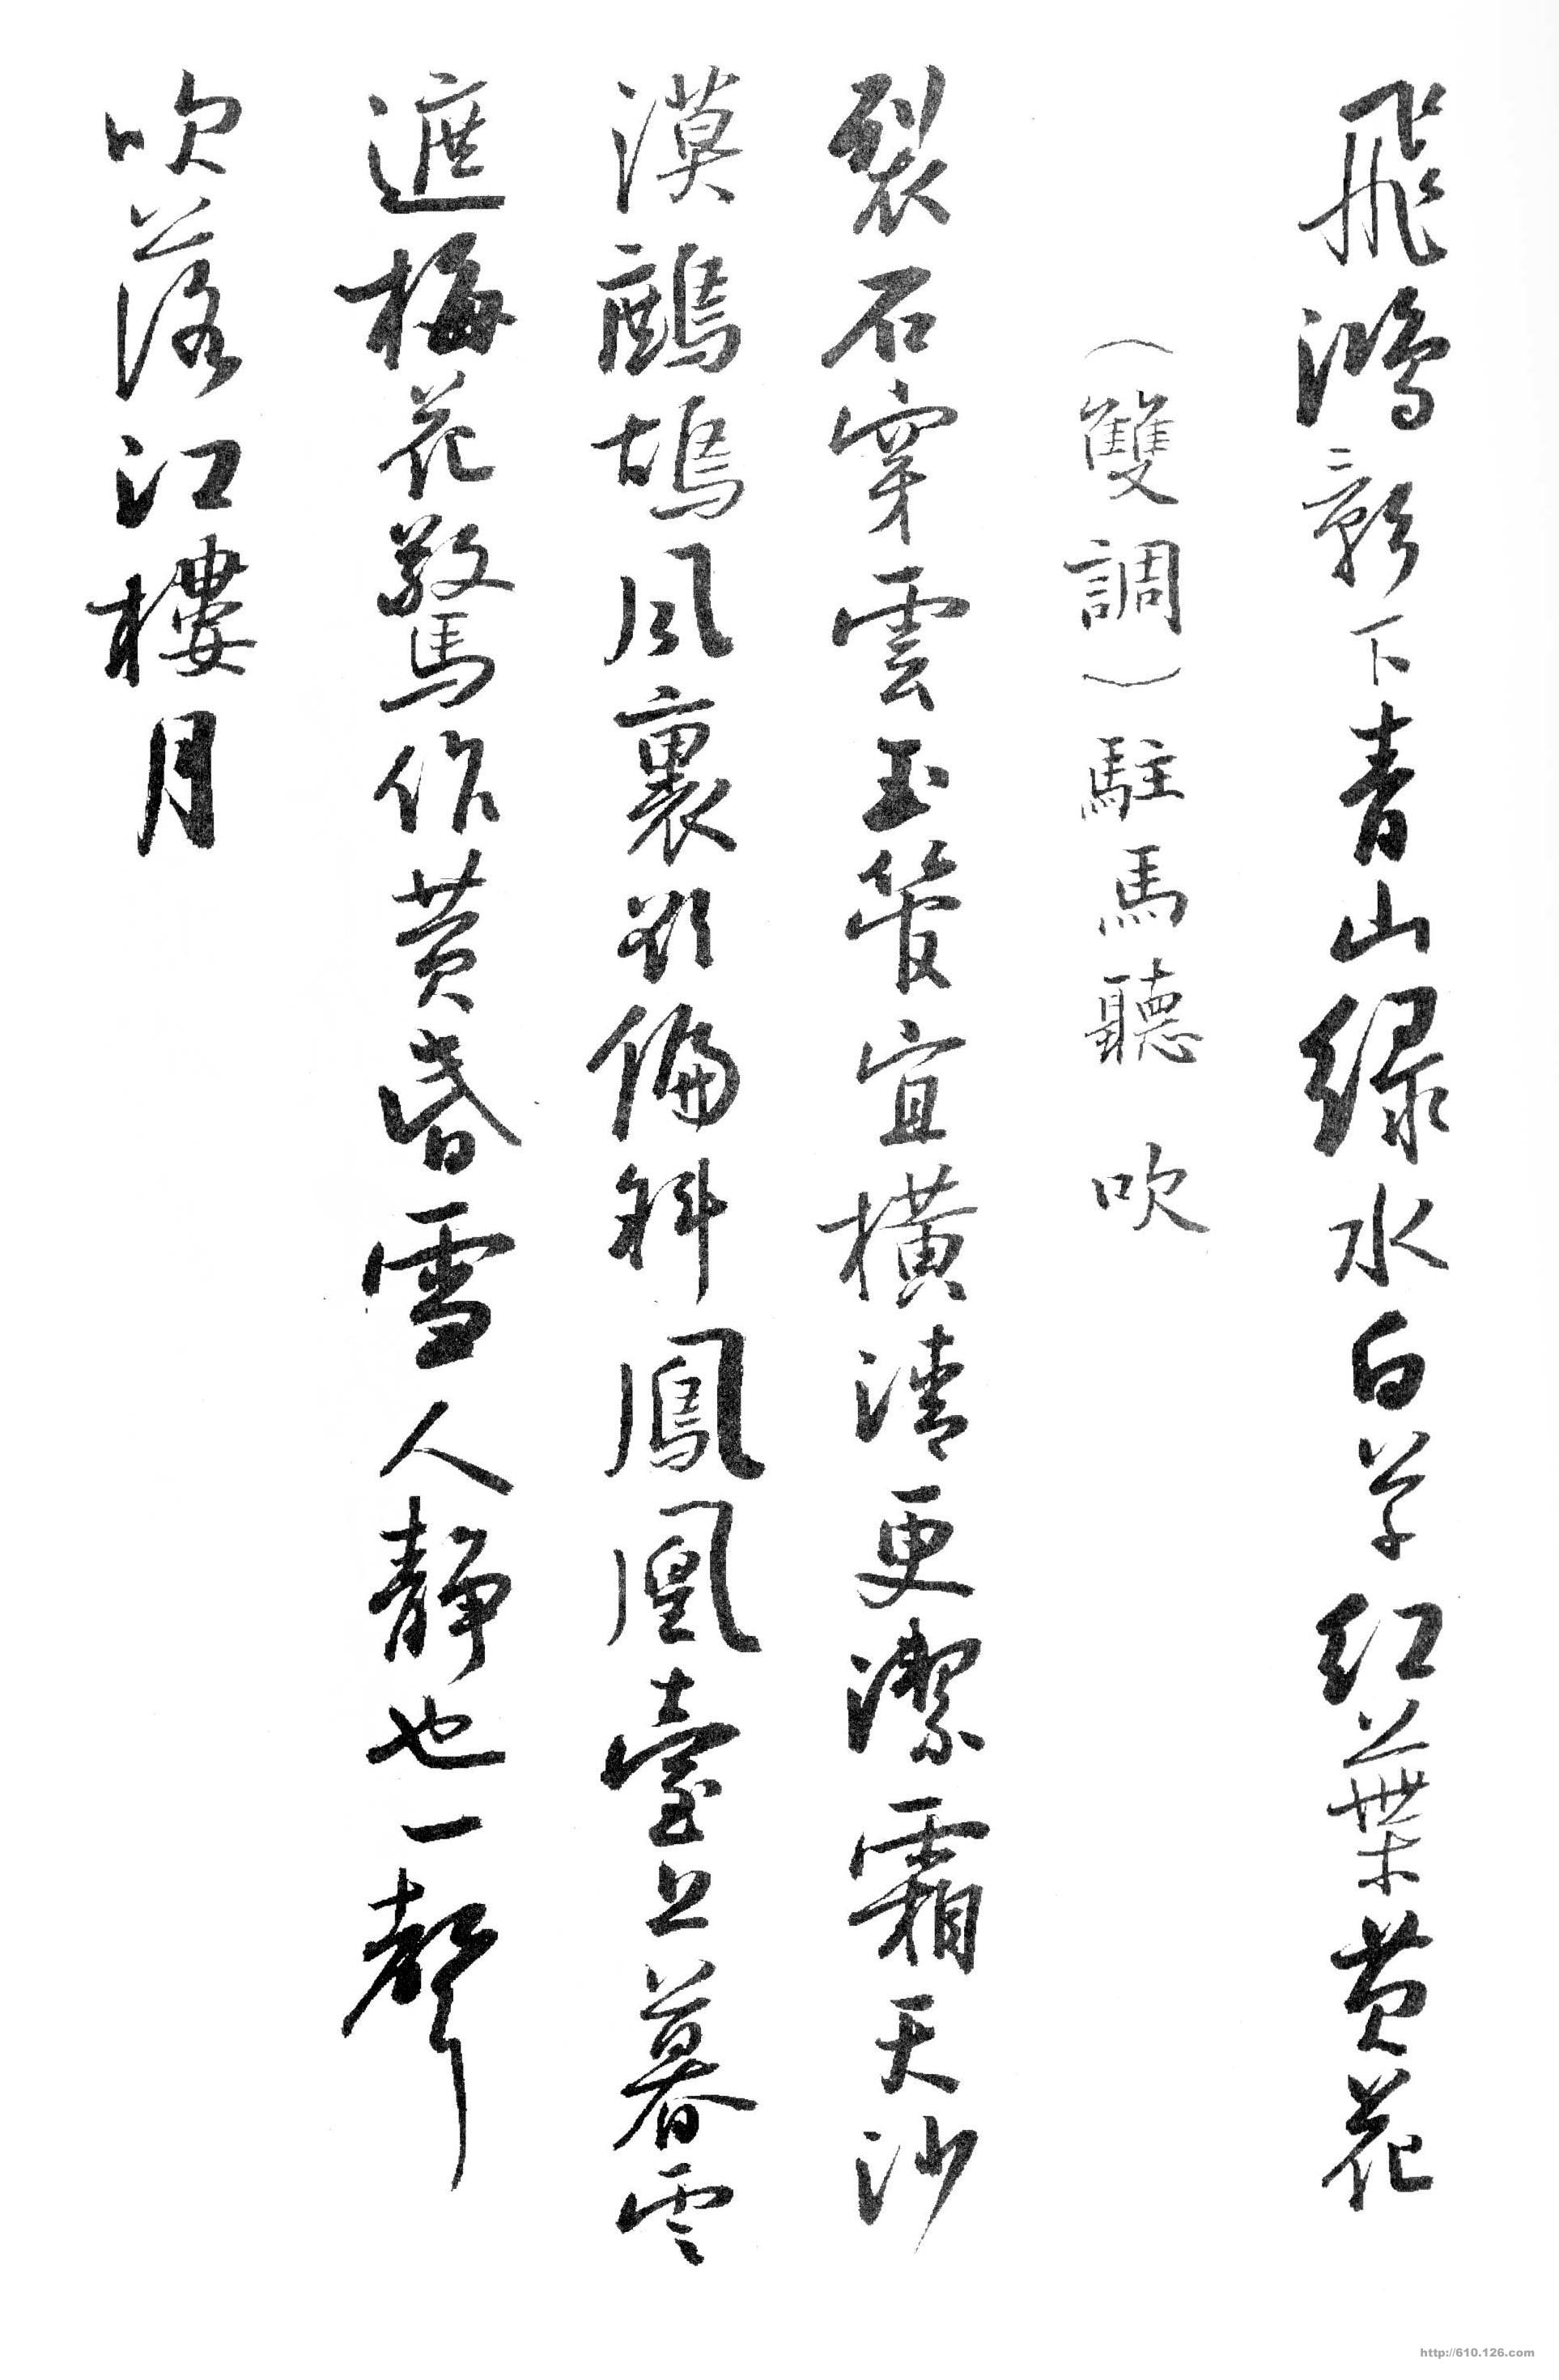 飛鴻影下青山緑水白草紅葉黄花
（雙調）駐馬聽 吹
裂石穿雲玉管宜橫清更潔霜天沙
漠鷓鴣風裏欲偏斜鳳凰臺上暮雲
遮梅花驚作黄昏雪人靜也一聲
吹落江樓月
http://610.126.com